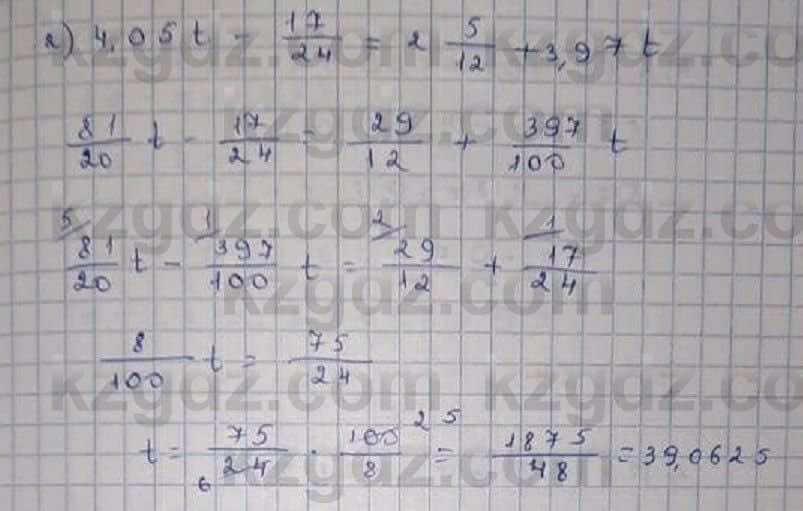 2) 4,05 t - 17/24 = 2 5/12 + 3,97 t
81/20 t - 17/24 = 29/12 + 397/100 t
5/ 81/20 t - 1/ 397/100 t = 2/ 29/12 + 1/ 17/24
8/100 t = 75/24
t = 75/24 6 · 100/8 25 = 1875/48 = 39,0625
kzgdz.com